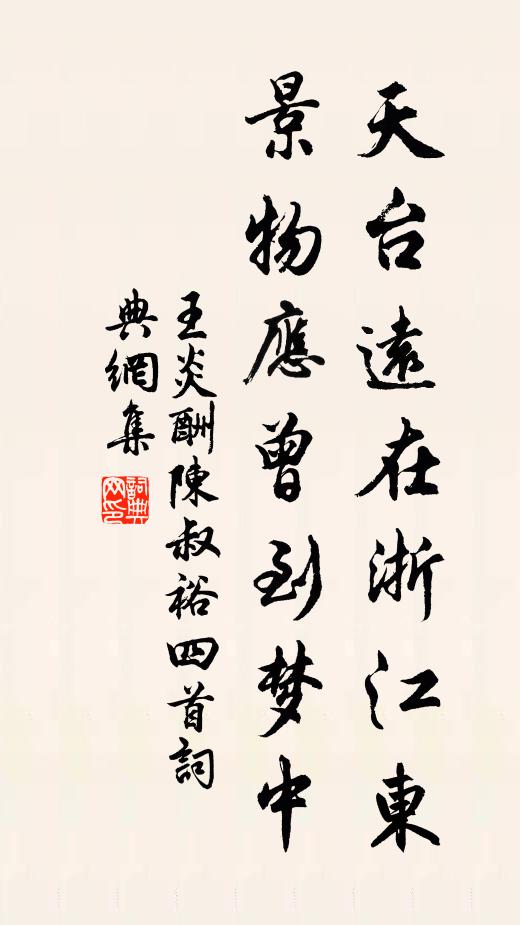 天台遠在浙江東
景物應曾到梦中
王炎酬陳叔裕四首詞
典網集
詞典網印